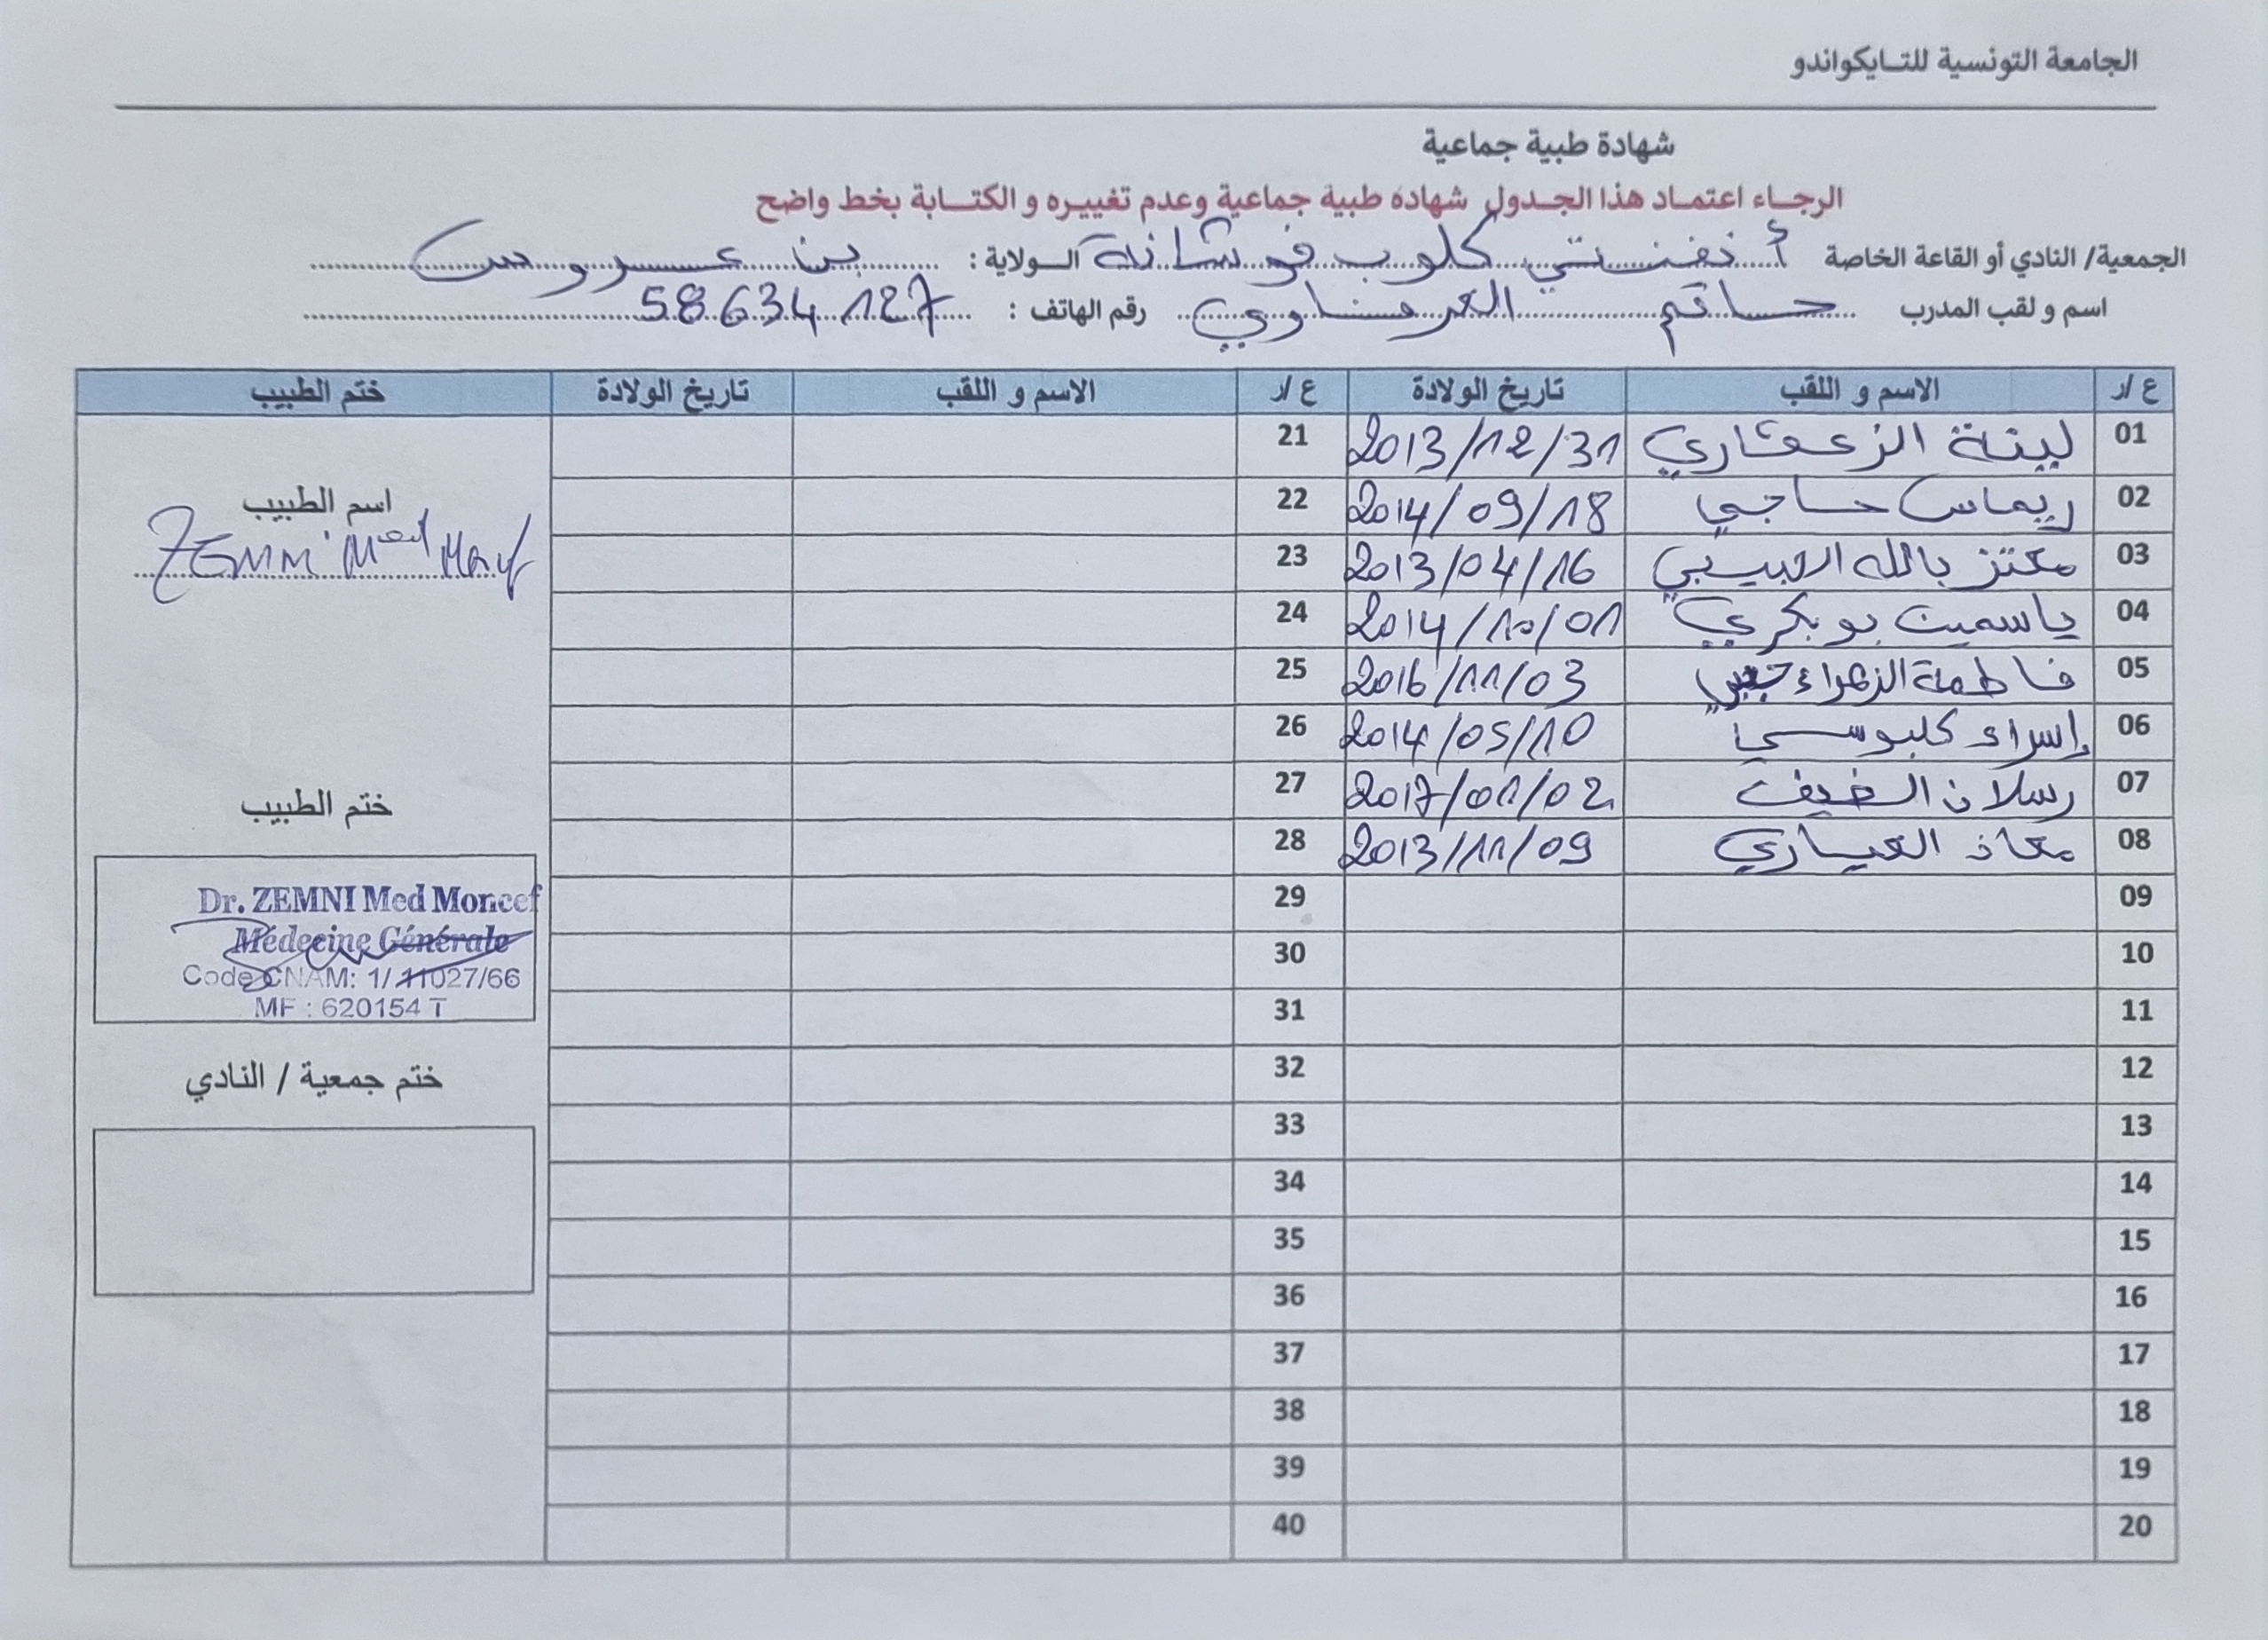 الجامعة التونسية للتايكواندو
شهادة طبية جماعية
الرجاء اعتماد هذا الجدول شهادة طبية جماعية وعدم تغييره و الكتابة بخط واضح
الجمعية/ النادي أو القاعة الخاصة أنفنتي كلوب فوشانة الولاية : بن عروس
اسم و لقب المدرب حاتم العرفاوي رقم الهاتف : 58634127
ع /ر الاسم و اللقب تاريخ الولادة ع /ر الاسم و اللقب تاريخ الولادة ختم الطبيب
01 لينة الزعفاري 2013/12/31 21
02 ريماس حاجي 2014/09/18 22
اسم الطبيب
ZEMNI Med
03 معتز بالله الحبيبي 2013/04/16 23
04 ياسمين بوبكري 2014/10/01 24
05 فاطمة الزهراء 2016/11/03 25
06 إسراء كلبوسي 2014/05/10 26
07 رسلان الضيف 2017/01/02 27
ختم الطبيب
08 معاذ العياري 2013/11/09 28
09 29
Dr. ZEMNI Med Moncef
10 30
Médecine Générale
Code CNAM: 1/ 11027/66
11 31
MF : 620154 T
12 32
ختم جمعية / النادي
13 33
14 34
15 35
16 36
17 37
18 38
19 39
20 40